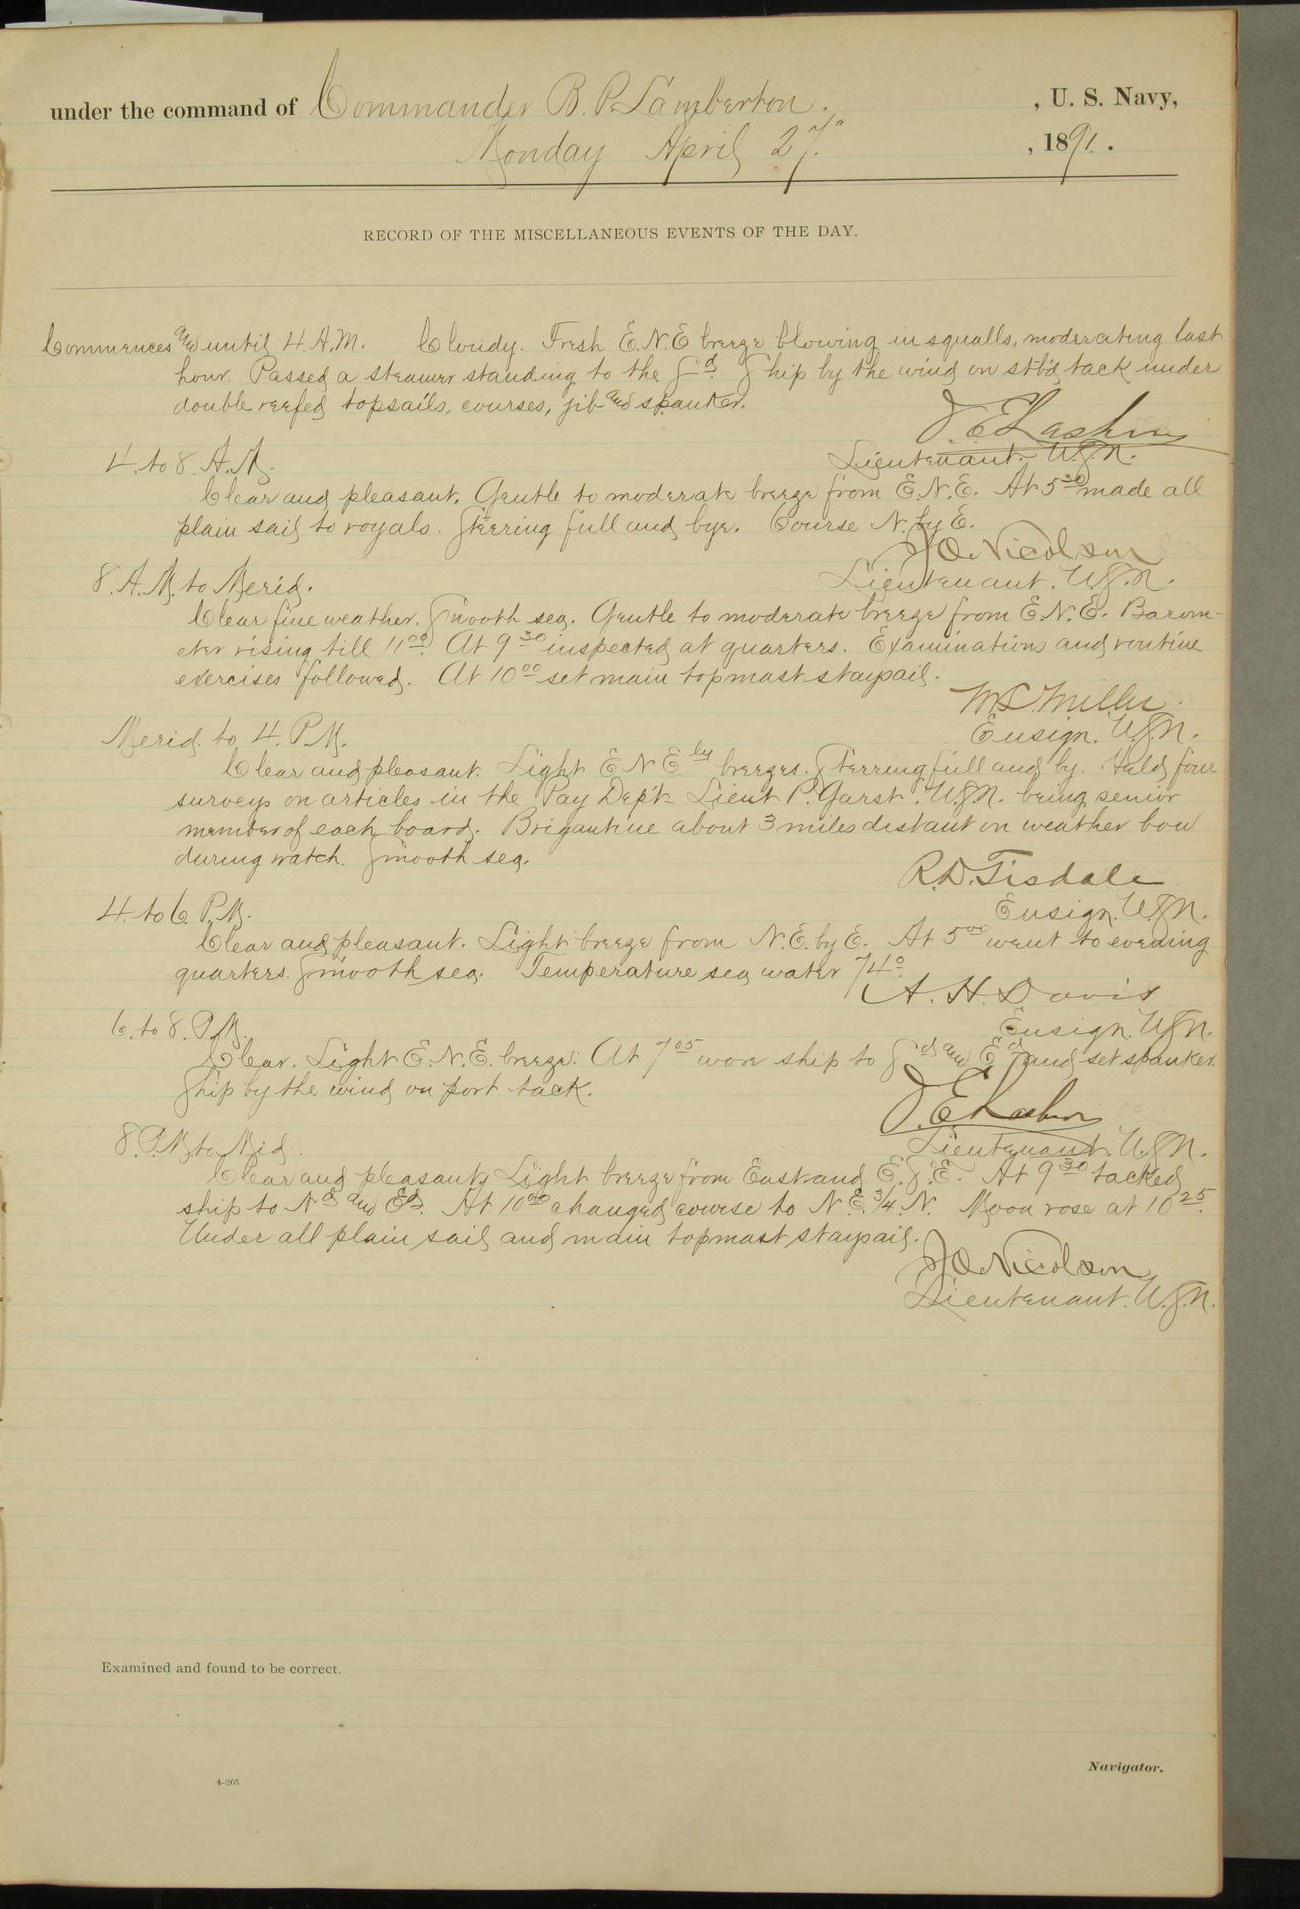 under the command of Commander B. P. Lamberton. , U. S. Navy,
Monday April 27" , 1891.
RECORD OF THE MISCELLANEOUS EVENTS OF THE DAY.
Commences and until 4 A.M. Cloudy. Fresh E.N.E breeze blowing in squalls, moderating last
hour. Passed a steamer standing to the Sd. Ship by the wind on stb'd tack under
double reefed topsails, courses, jib and spanker.
4 to 8 A.M. Lieutenant. U.S.N.
Clear and pleasant. Gentle to moderate breeze from E.N.E. At 5 30 made all
plain sail to royals. Steering full and bye. Course N. by E.
J O Nicolson
8 A.M. to Merid. Lieutenant. U.S.N.
Clear fine weather. Smooth sea. Gentle to moderate breeze from E.N.E. Barom-
eter rising till 11 00. At 9 30 inspected at quarters. Examinations and routine
exercises followed. At 10 00 set main topmast staysail.
M. L. Miller.
Merid. to 4 P.M. Ensign. U.S.N.
Clear and pleasant. Light E N E ly breezes. Steering full and by. Held four
surveys on articles in the Pay Dep't Lieut P. Garst. U.S.N. being senior
member of each board. Brigantine about 3 miles distant on weather bow
during watch. Smooth sea.
R. D. Tisdale
4 to 6 P.M. Ensign. U.S.N.
Clear and pleasant. Light breeze from N.E. by E. At 5 00 went to evening
quarters. Smooth sea. Temperature sea water 74°.
A. H. Davis
6 to 8 P.M. Ensign. U.S.N.
Clear. Light E.N.E. breeze. At 7 05 wore ship to Sd and Ed and set spanker.
Ship by the wind on port tack.
8 P.M. to Mid. Lieutenant. U.S.N.
Clear and pleasant. Light breeze from East and E.S.E. At 9 30 tacked
ship to Nd and Ed. At 10 00 changed course to N.E. 3/4 N. Moon rose at 10 25.
Under all plain sail and main topmast staysail.
J O Nicolson
Lieutenant. U.S.N.
Examined and found to be correct.
Navigator.
4-205